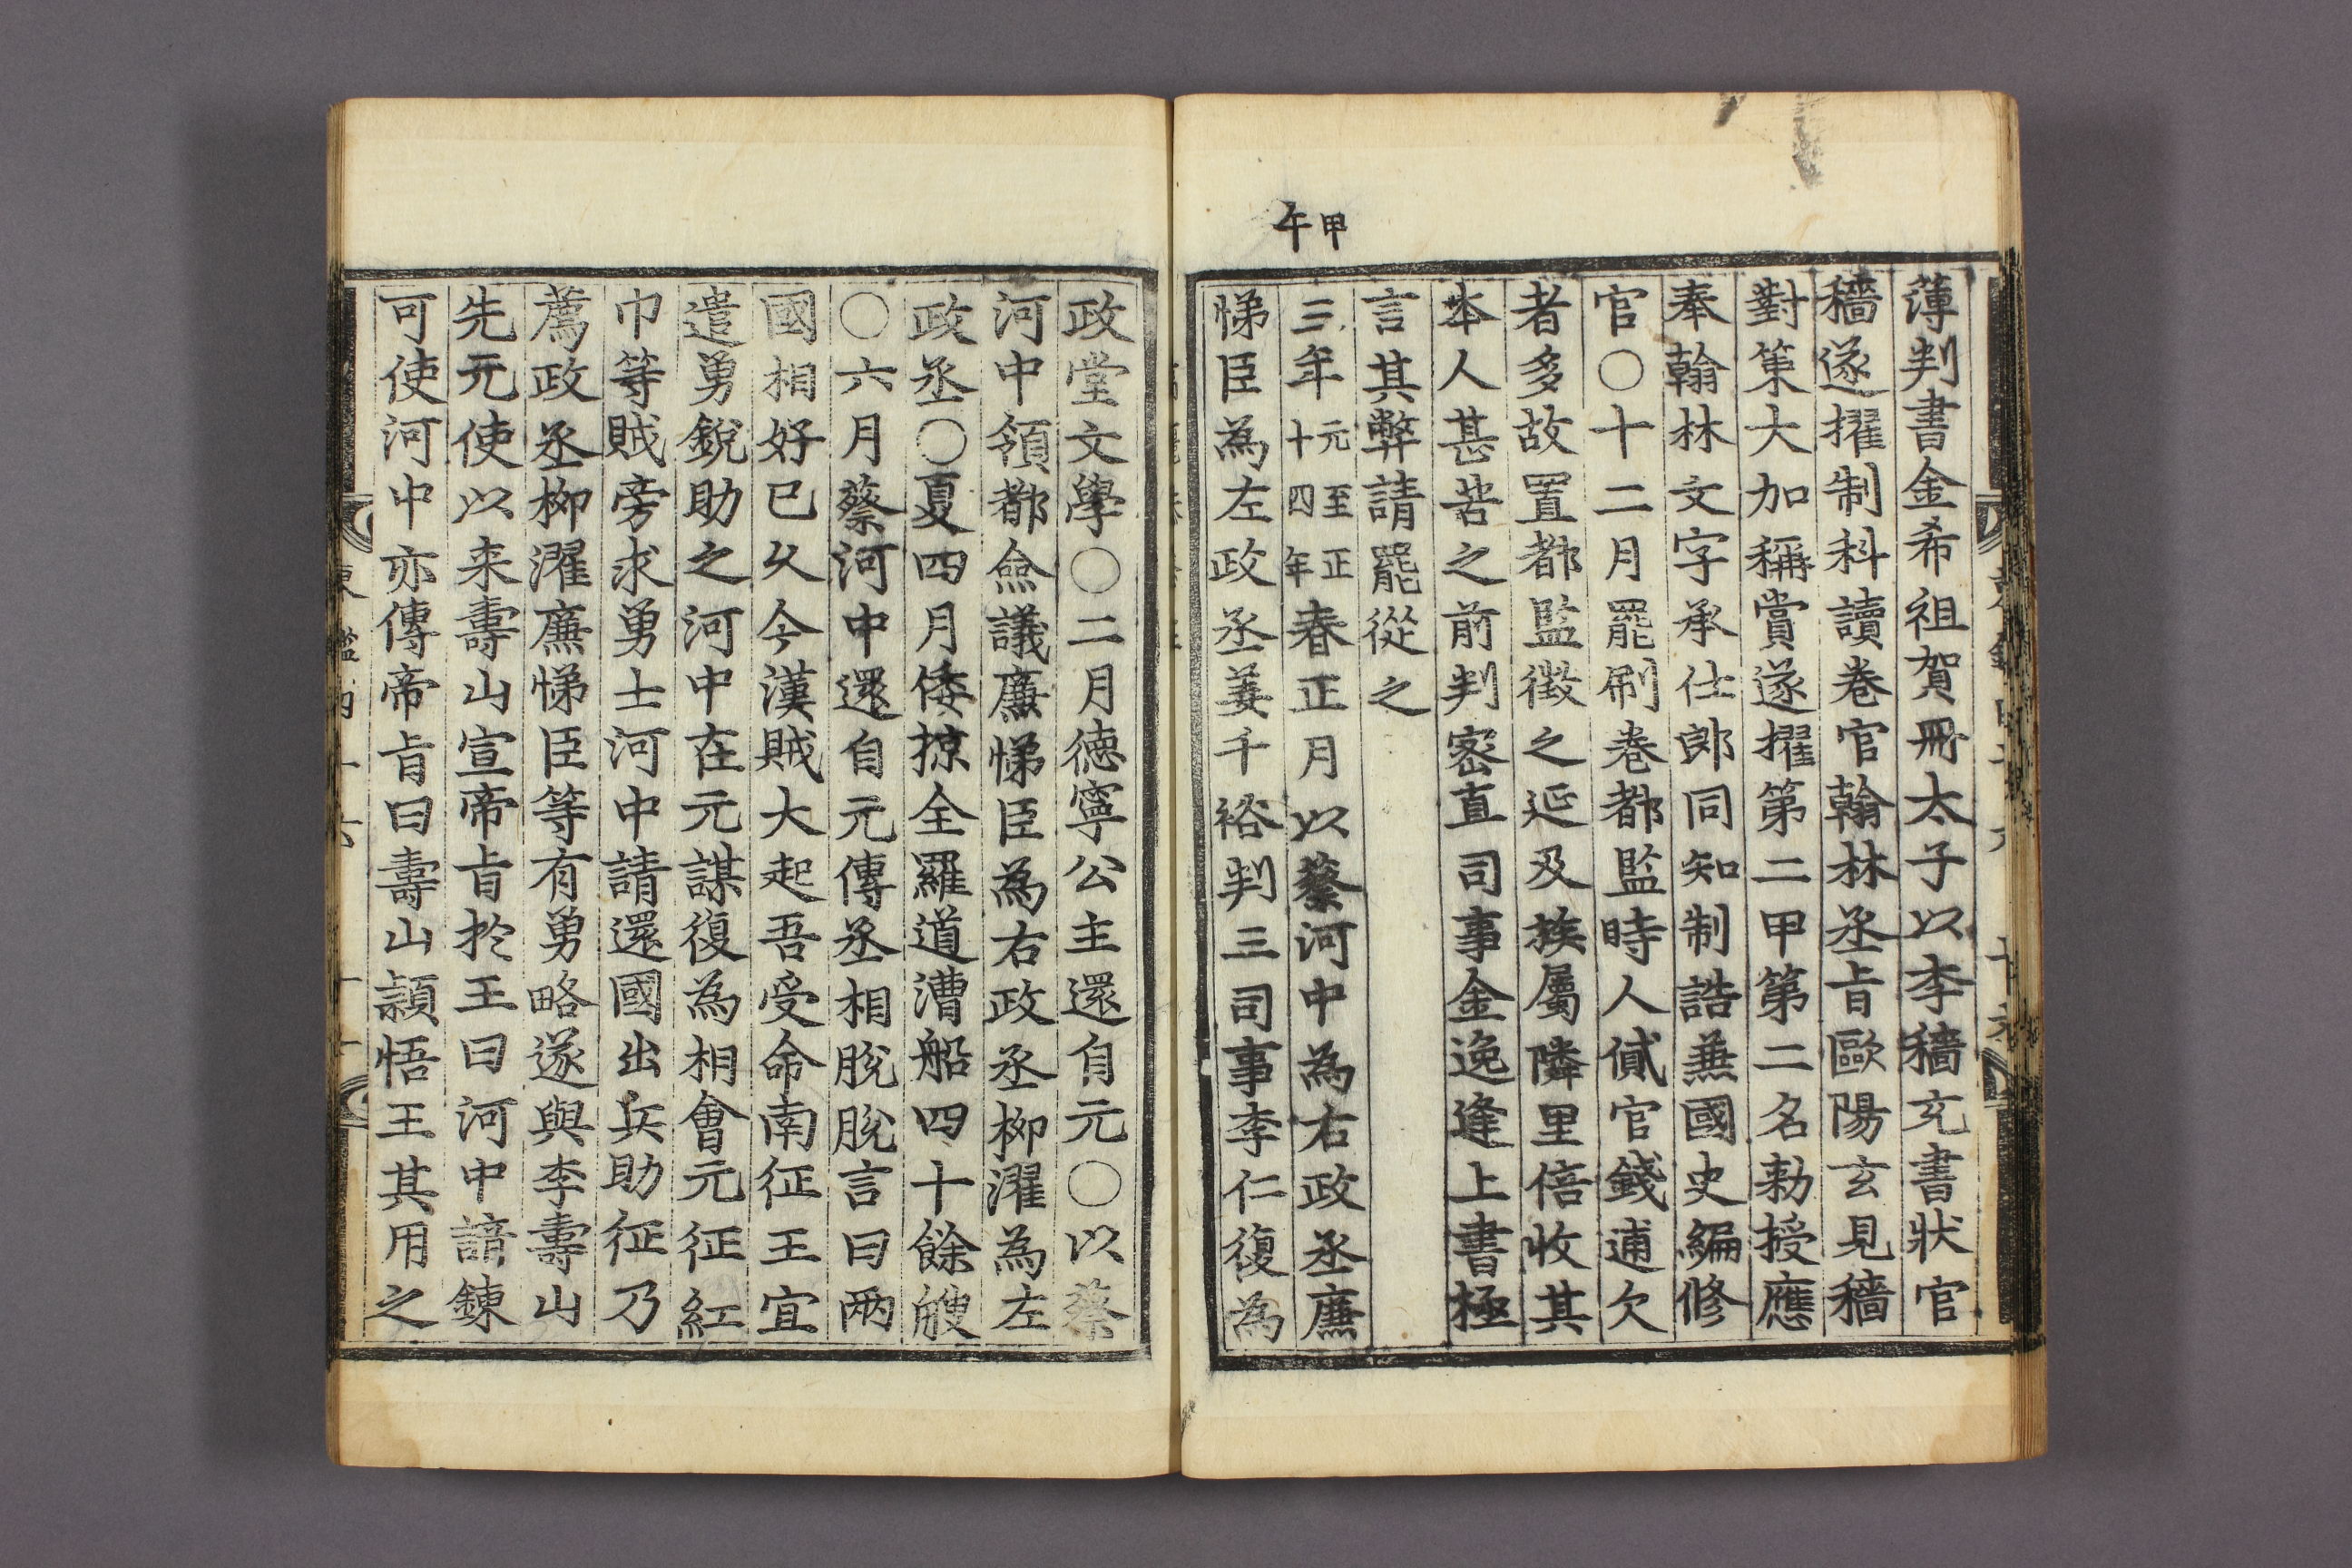 甲午
薄判書金希祖賀冊太子以李穡充書狀官
穡遂擢制科讀卷官翰林丞㫖歐陽玄見穡
對策大加稱賞遂擢第二甲第二名勅授應
奉翰林文字承仕郎同知制誥兼國史編修
官○十二月罷刷卷都監時人貸官錢逋欠
者多故置都監徵之延及族屬隣里倍收其
本人甚苦之前判密直司事金逸逢上書極
言其弊請罷從之
三年元至正十四年春正月以蔡河中為右政丞廉
悌臣為左政丞姜千裕判三司事李仁復為
政堂文學○二月德寧公主還自元○以蔡
河中領都僉議廉悌臣為右政丞柳濯為左
政丞○夏四月倭掠全羅道漕船四十餘艘
○六月蔡河中還自元傳丞相脫脫言曰兩
國相好已久今漢賊大起吾受命南征王宜
遣勇銳助之河中在元謀復為相會元征紅
巾等賊旁求勇士河中請還國出兵助征乃
薦政丞柳濯廉悌臣等有勇略遂與李壽山
先元使以来壽山宣帝㫖於王曰河中諳鍊
可使河中亦傳帝㫖曰壽山頴悟王其用之